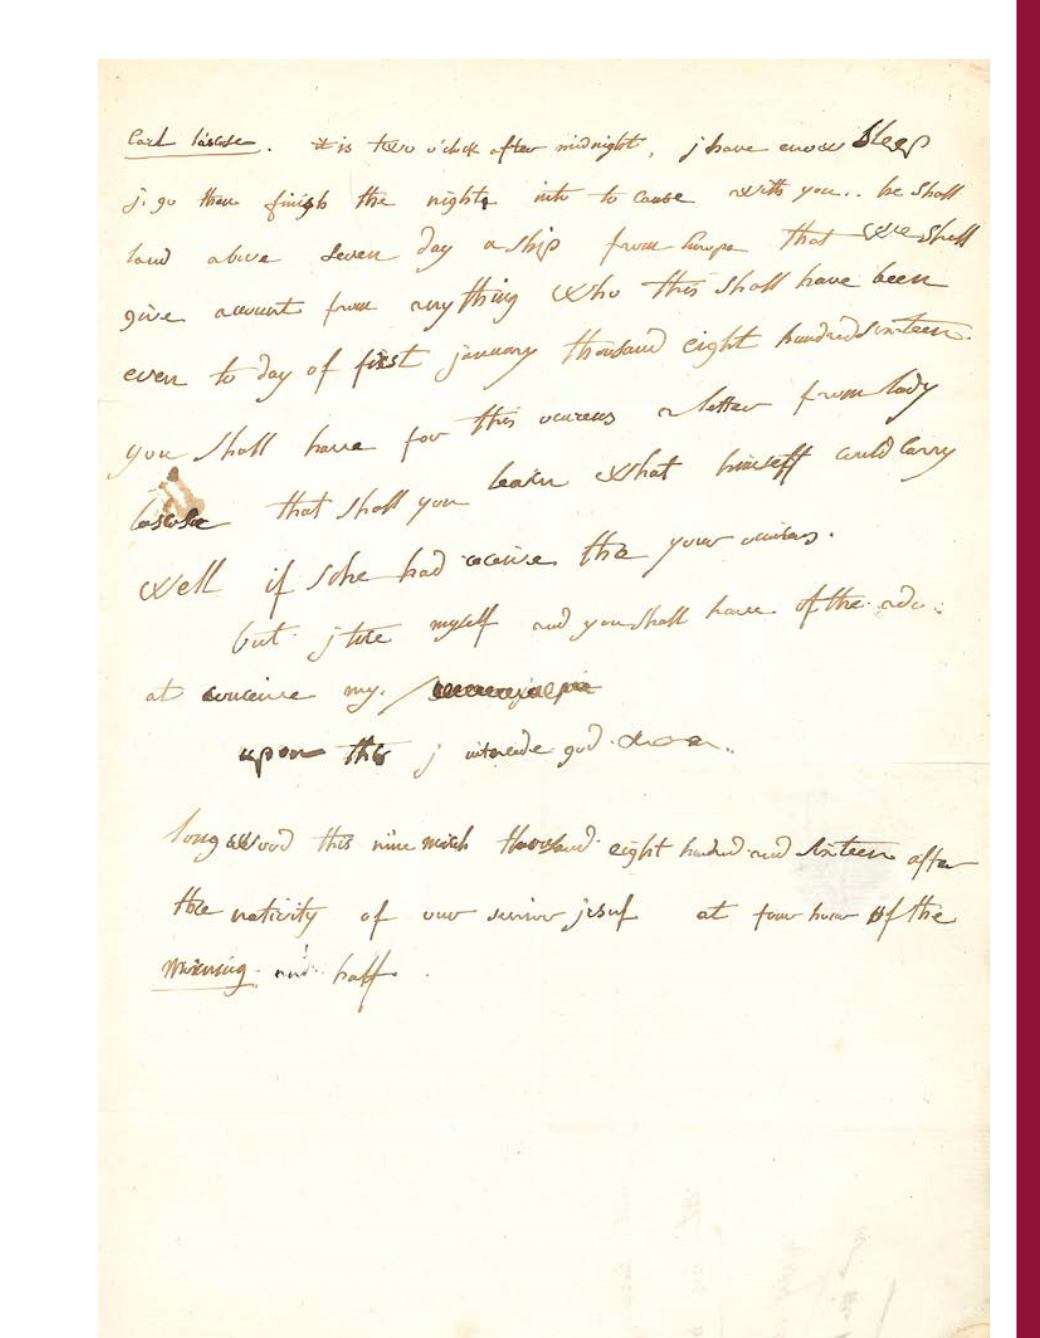 it is two o'clock after midnight, j have enow sleep
j. go then finish the night into to cause with you.. he shall
land above seven day a ship from Europe that we shall
give account from any thing who this shall have been
even to day of first january thousand eight hundred sixteen.
you shall have for this a letter from lady
that shall you learn what himself could carry
well if sche had receive the your
but j tire myself and you shall have of the
at conceive my
upon this j intercede god
longwood this nine thousand eight hundred and sixteen after
the nativity of our jesus at four hour of the
morning and half.